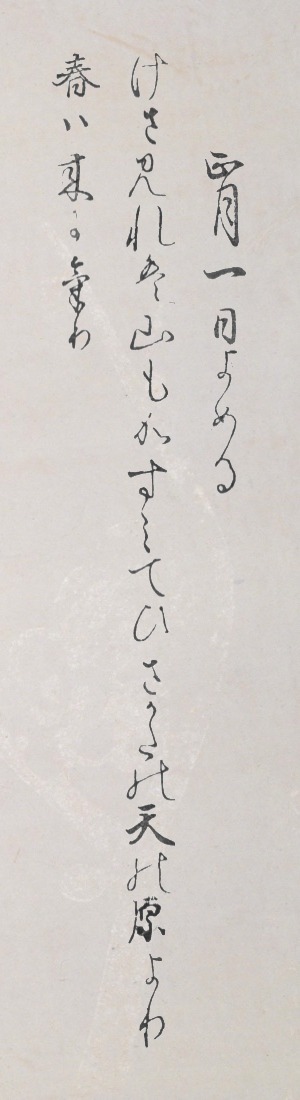 正月一日よめる
けさみれは山もかすみてひさかたの天の原より
春ハ来にけり